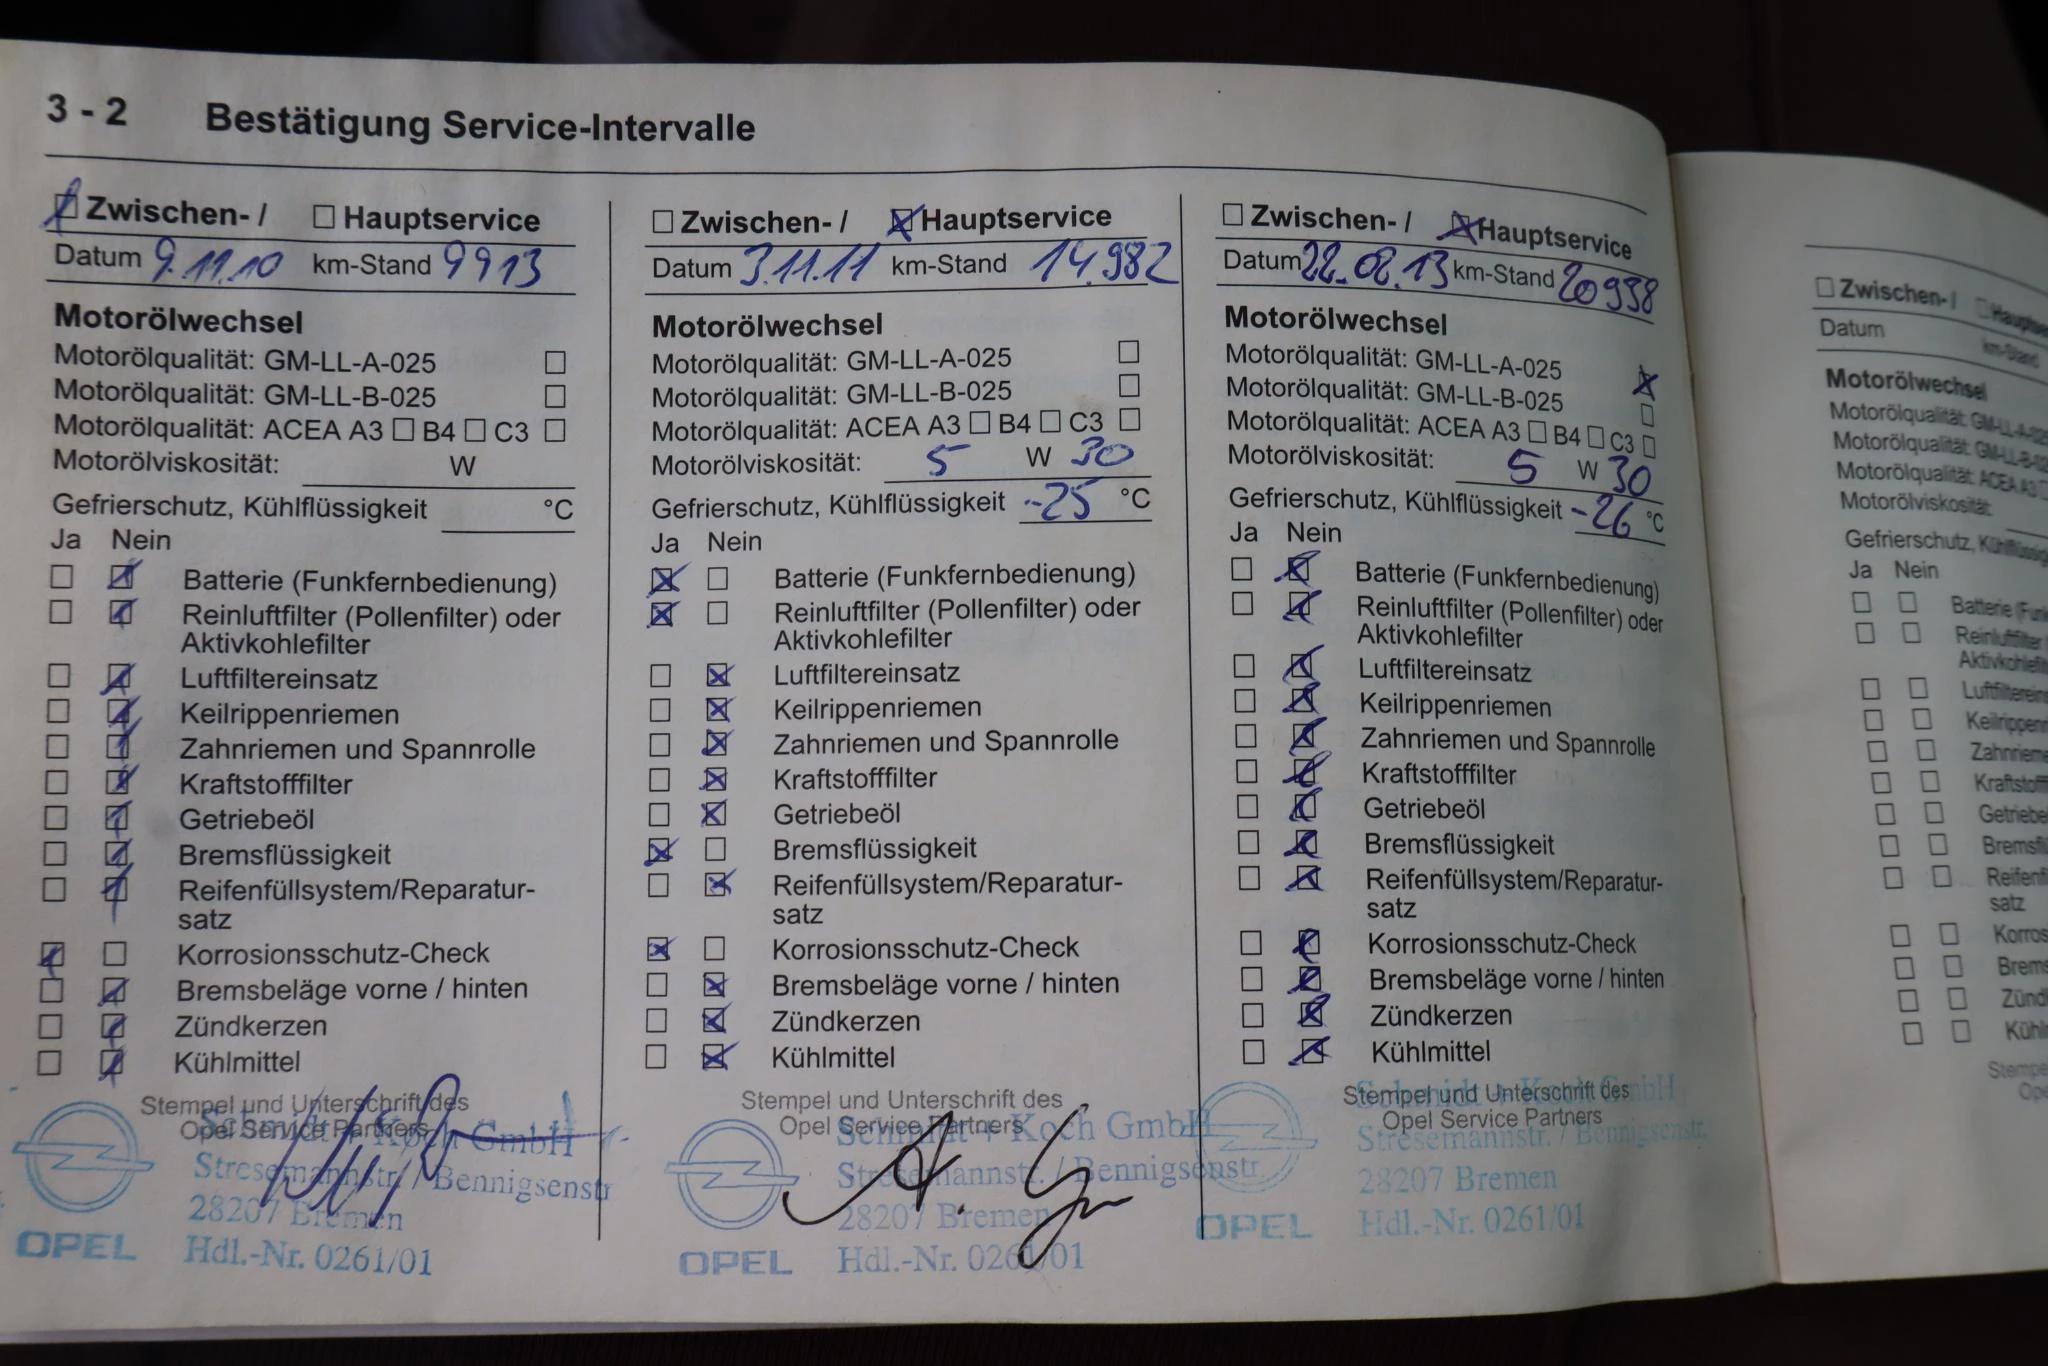 3 - 2 Bestätigung Service-Intervalle
Zwischen- / Hauptservice
Datum 9.11.10 km-Stand 9913
Motorölwechsel
Motorölqualität: GM-LL-A-025
Motorölqualität: GM-LL-B-025
Motorölqualität: ACEA A3 B4 C3
Motorölviskosität: W
Gefrierschutz, Kühlflüssigkeit °C
Ja Nein
Batterie (Funkfernbedienung)
Reinluftfilter (Pollenfilter) oder
Aktivkohlefilter
Luftfiltereinsatz
Keilrippenriemen
Zahnriemen und Spannrolle
Kraftstofffilter
Getriebeöl
Bremsflüssigkeit
Reifenfüllsystem/Reparatur-
satz
Korrosionsschutz-Check
Bremsbeläge vorne / hinten
Zündkerzen
Kühlmittel
Stempel und Unterschrift des
Opel Service Partners
Schmidt + Koch GmbH
Stresemannstr. / Bennigsenstr
28207 Bremen
OPEL Hdl.-Nr. 0261/01
Zwischen- / Hauptservice
Datum 3.11.11 km-Stand 14.982
Motorölwechsel
Motorölqualität: GM-LL-A-025
Motorölqualität: GM-LL-B-025
Motorölqualität: ACEA A3 B4 C3
Motorölviskosität: 5 W 30
Gefrierschutz, Kühlflüssigkeit -25 °C
Ja Nein
Batterie (Funkfernbedienung)
Reinluftfilter (Pollenfilter) oder
Aktivkohlefilter
Luftfiltereinsatz
Keilrippenriemen
Zahnriemen und Spannrolle
Kraftstofffilter
Getriebeöl
Bremsflüssigkeit
Reifenfüllsystem/Reparatur-
satz
Korrosionsschutz-Check
Bremsbeläge vorne / hinten
Zündkerzen
Kühlmittel
Stempel und Unterschrift des
Opel Service Partners
Schmidt + Koch GmbH
Stresemannstr. / Bennigsenstr.
28207 Bremen
OPEL Hdl.-Nr. 0261/01
Zwischen- / Hauptservice
Datum 22.02.13 km-Stand 20938
Motorölwechsel
Motorölqualität: GM-LL-A-025
Motorölqualität: GM-LL-B-025
Motorölqualität: ACEA A3 B4 C3
Motorölviskosität: 5 W 30
Gefrierschutz, Kühlflüssigkeit -26 °C
Ja Nein
Batterie (Funkfernbedienung)
Reinluftfilter (Pollenfilter) oder
Aktivkohlefilter
Luftfiltereinsatz
Keilrippenriemen
Zahnriemen und Spannrolle
Kraftstofffilter
Getriebeöl
Bremsflüssigkeit
Reifenfüllsystem/Reparatur-
satz
Korrosionsschutz-Check
Bremsbeläge vorne / hinten
Zündkerzen
Kühlmittel
Stempel und Unterschrift des
Opel Service Partners
Schmidt + Koch GmbH
Stresemannstr. / Bennigsenstr.
28207 Bremen
OPEL Hdl.-Nr. 0261/01
Zwischen- /
Datum km-Stand
Motorölwechsel
Motorölqualität: GM-LL-A-025
Motorölqualität: GM-LL-B-02
Motorölqualität: ACEA A3
Motorölviskosität:
Gefrierschutz,
Ja Nein
Batterie